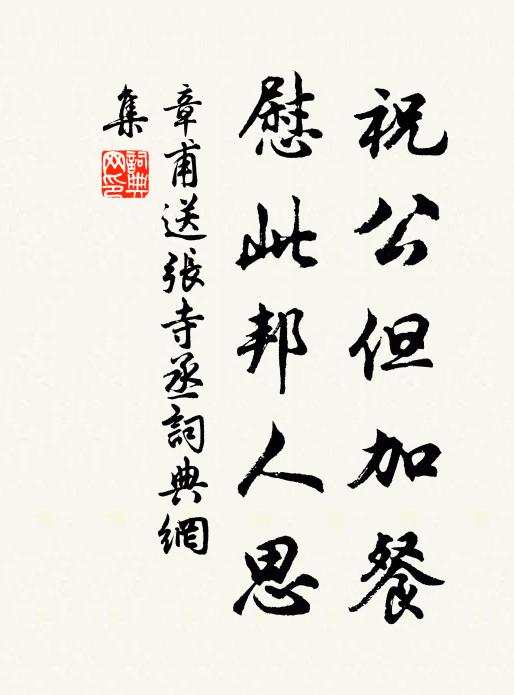 祝公但加餐
慰此邦人思
章甫送張寺丞詞典網
集
詞典
网印